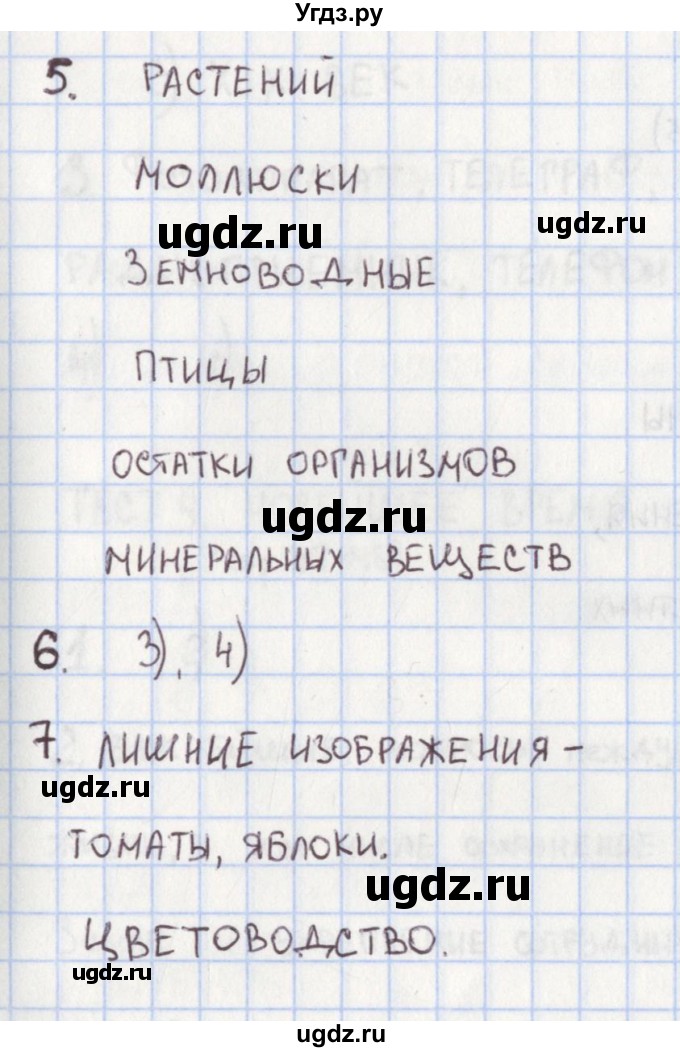 Угдз.ру
5. РАСТЕНИЙ
МОЛЛЮСКИ
ugdz.ru
ugdz.ru
ЗЕМНОВОДНЫЕ
ПТИЦЫ
ОСТАТКИ ОРГАНИЗМОВ
ugdz.ru
МИНЕРАЛЬНЫХ ВЕЩЕСТВ
6. 3), 4)
7. ЛИШНИЕ ИЗОБРАЖЕНИЯ -
ugdz.ru
ТОМАТЫ, ЯБЛОКИ.
ugdz.ru
ЦВЕТОВОДСТВО.
ugdz.ru
ugdz.ru